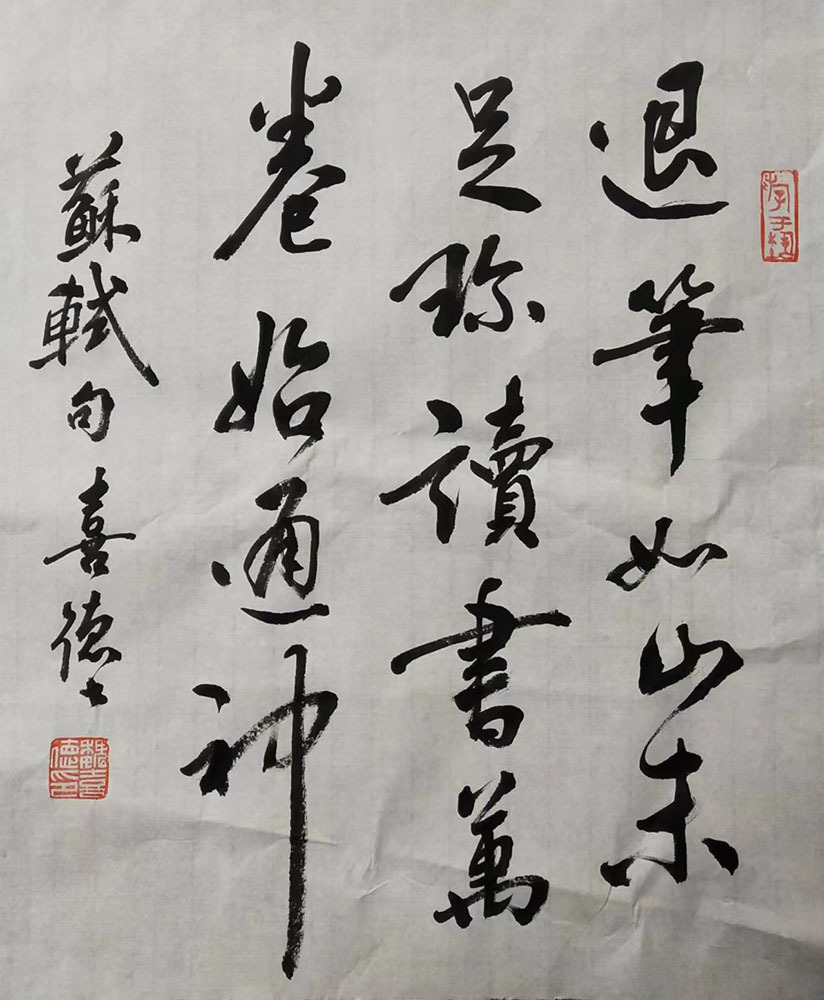 退筆如山未
足珍讀書萬
卷始通神
蘇軾句 喜德士